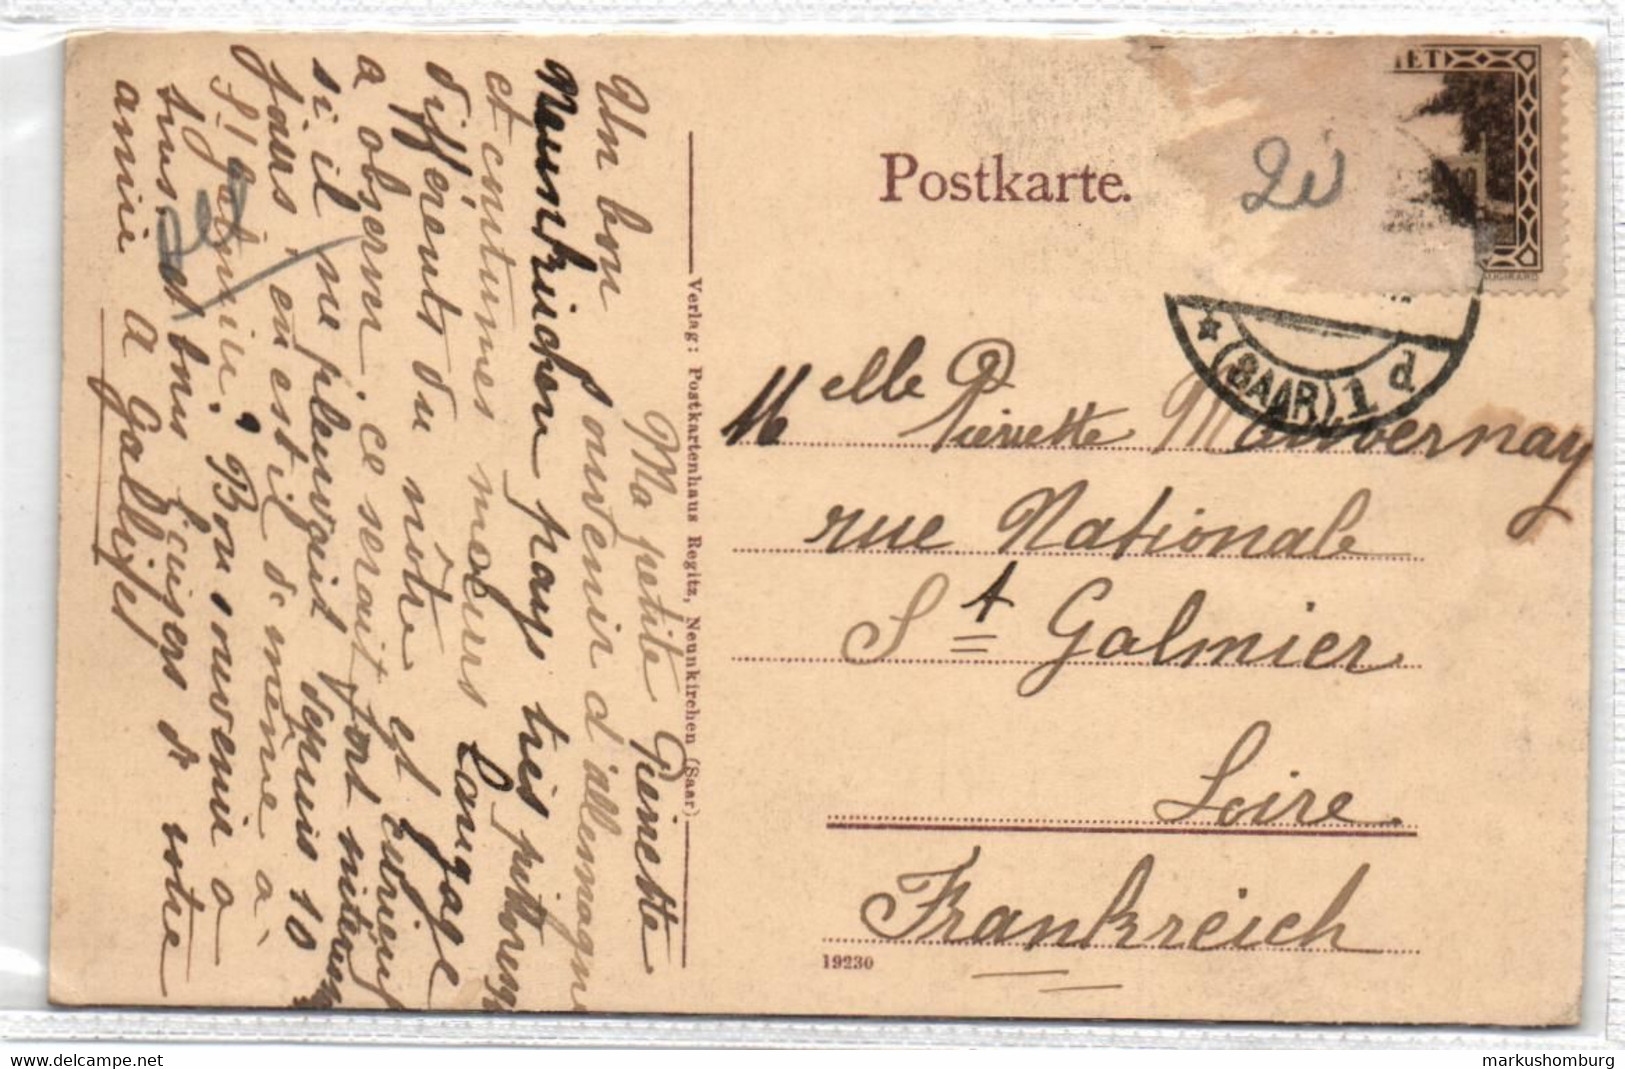 Ma petite Pierrette
Un bon souvenir d'allemagne
Neunkirchen pays très pittoresq
et coutumes moeurs langage
différents du nôtre et curieux
a observer. ce serait fort intéress
si il ne pleuvait depuis 10
jours, en est il de même à
St Galmier. Bon souvenir a
tous et bons baisers de votre
amie A Gallifet
Verlag: Postkartenhaus Regitz, Neunkirchen (Saar)
Postkarte.
20
IET
VAUGIRARD
(SAAR) 1 d
Melle Pierrette Mauvernay
rue Nationale
St Galmier
Loire
Frankreich
19230
delcampe.net
markushomburg